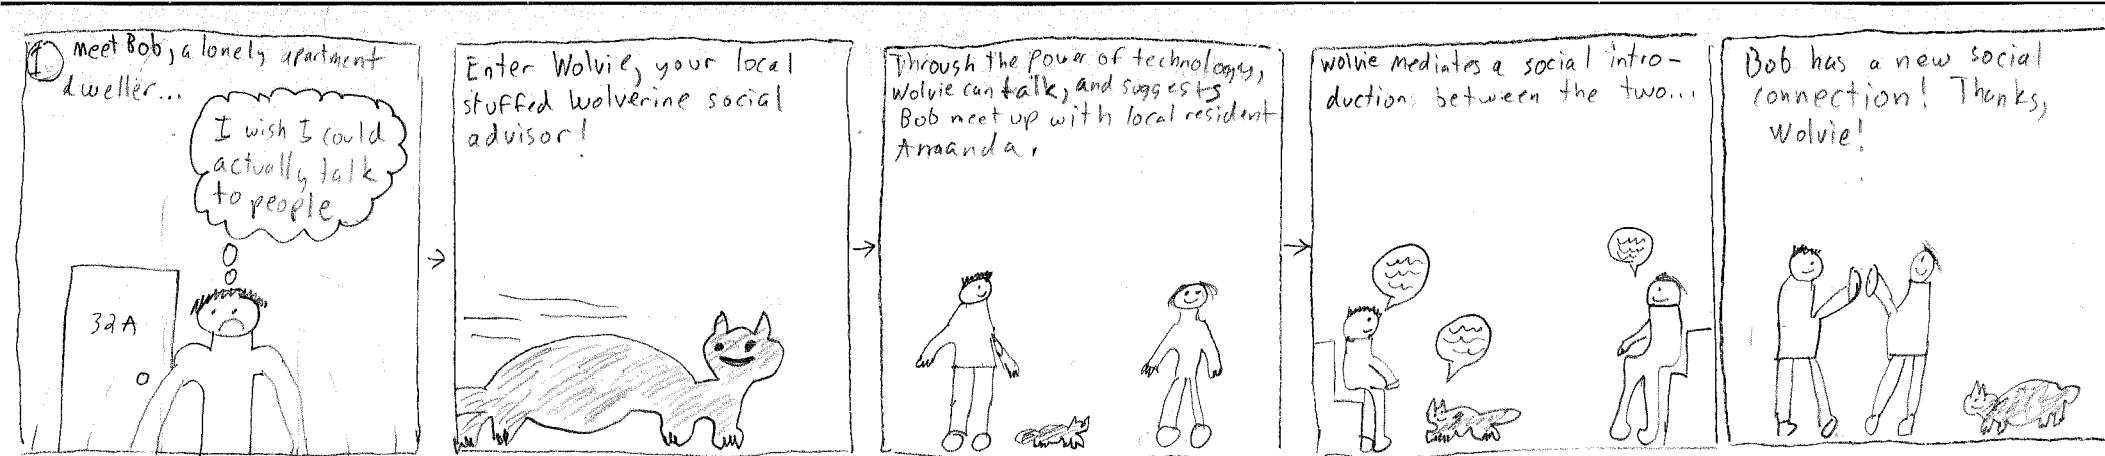 1. Meet Bob, a lonely apartment
dweller...
I wish I could
actually talk
to people
32A
Enter Wolvie, your local
stuffed wolverine social
advisor!
Through the power of technology,
Wolvie can talk, and suggests
Bob meet up with local resident
Amanda.
Wolvie mediates a social intro-
duction between the two...
Bob has a new social
connection! Thanks,
Wolvie!